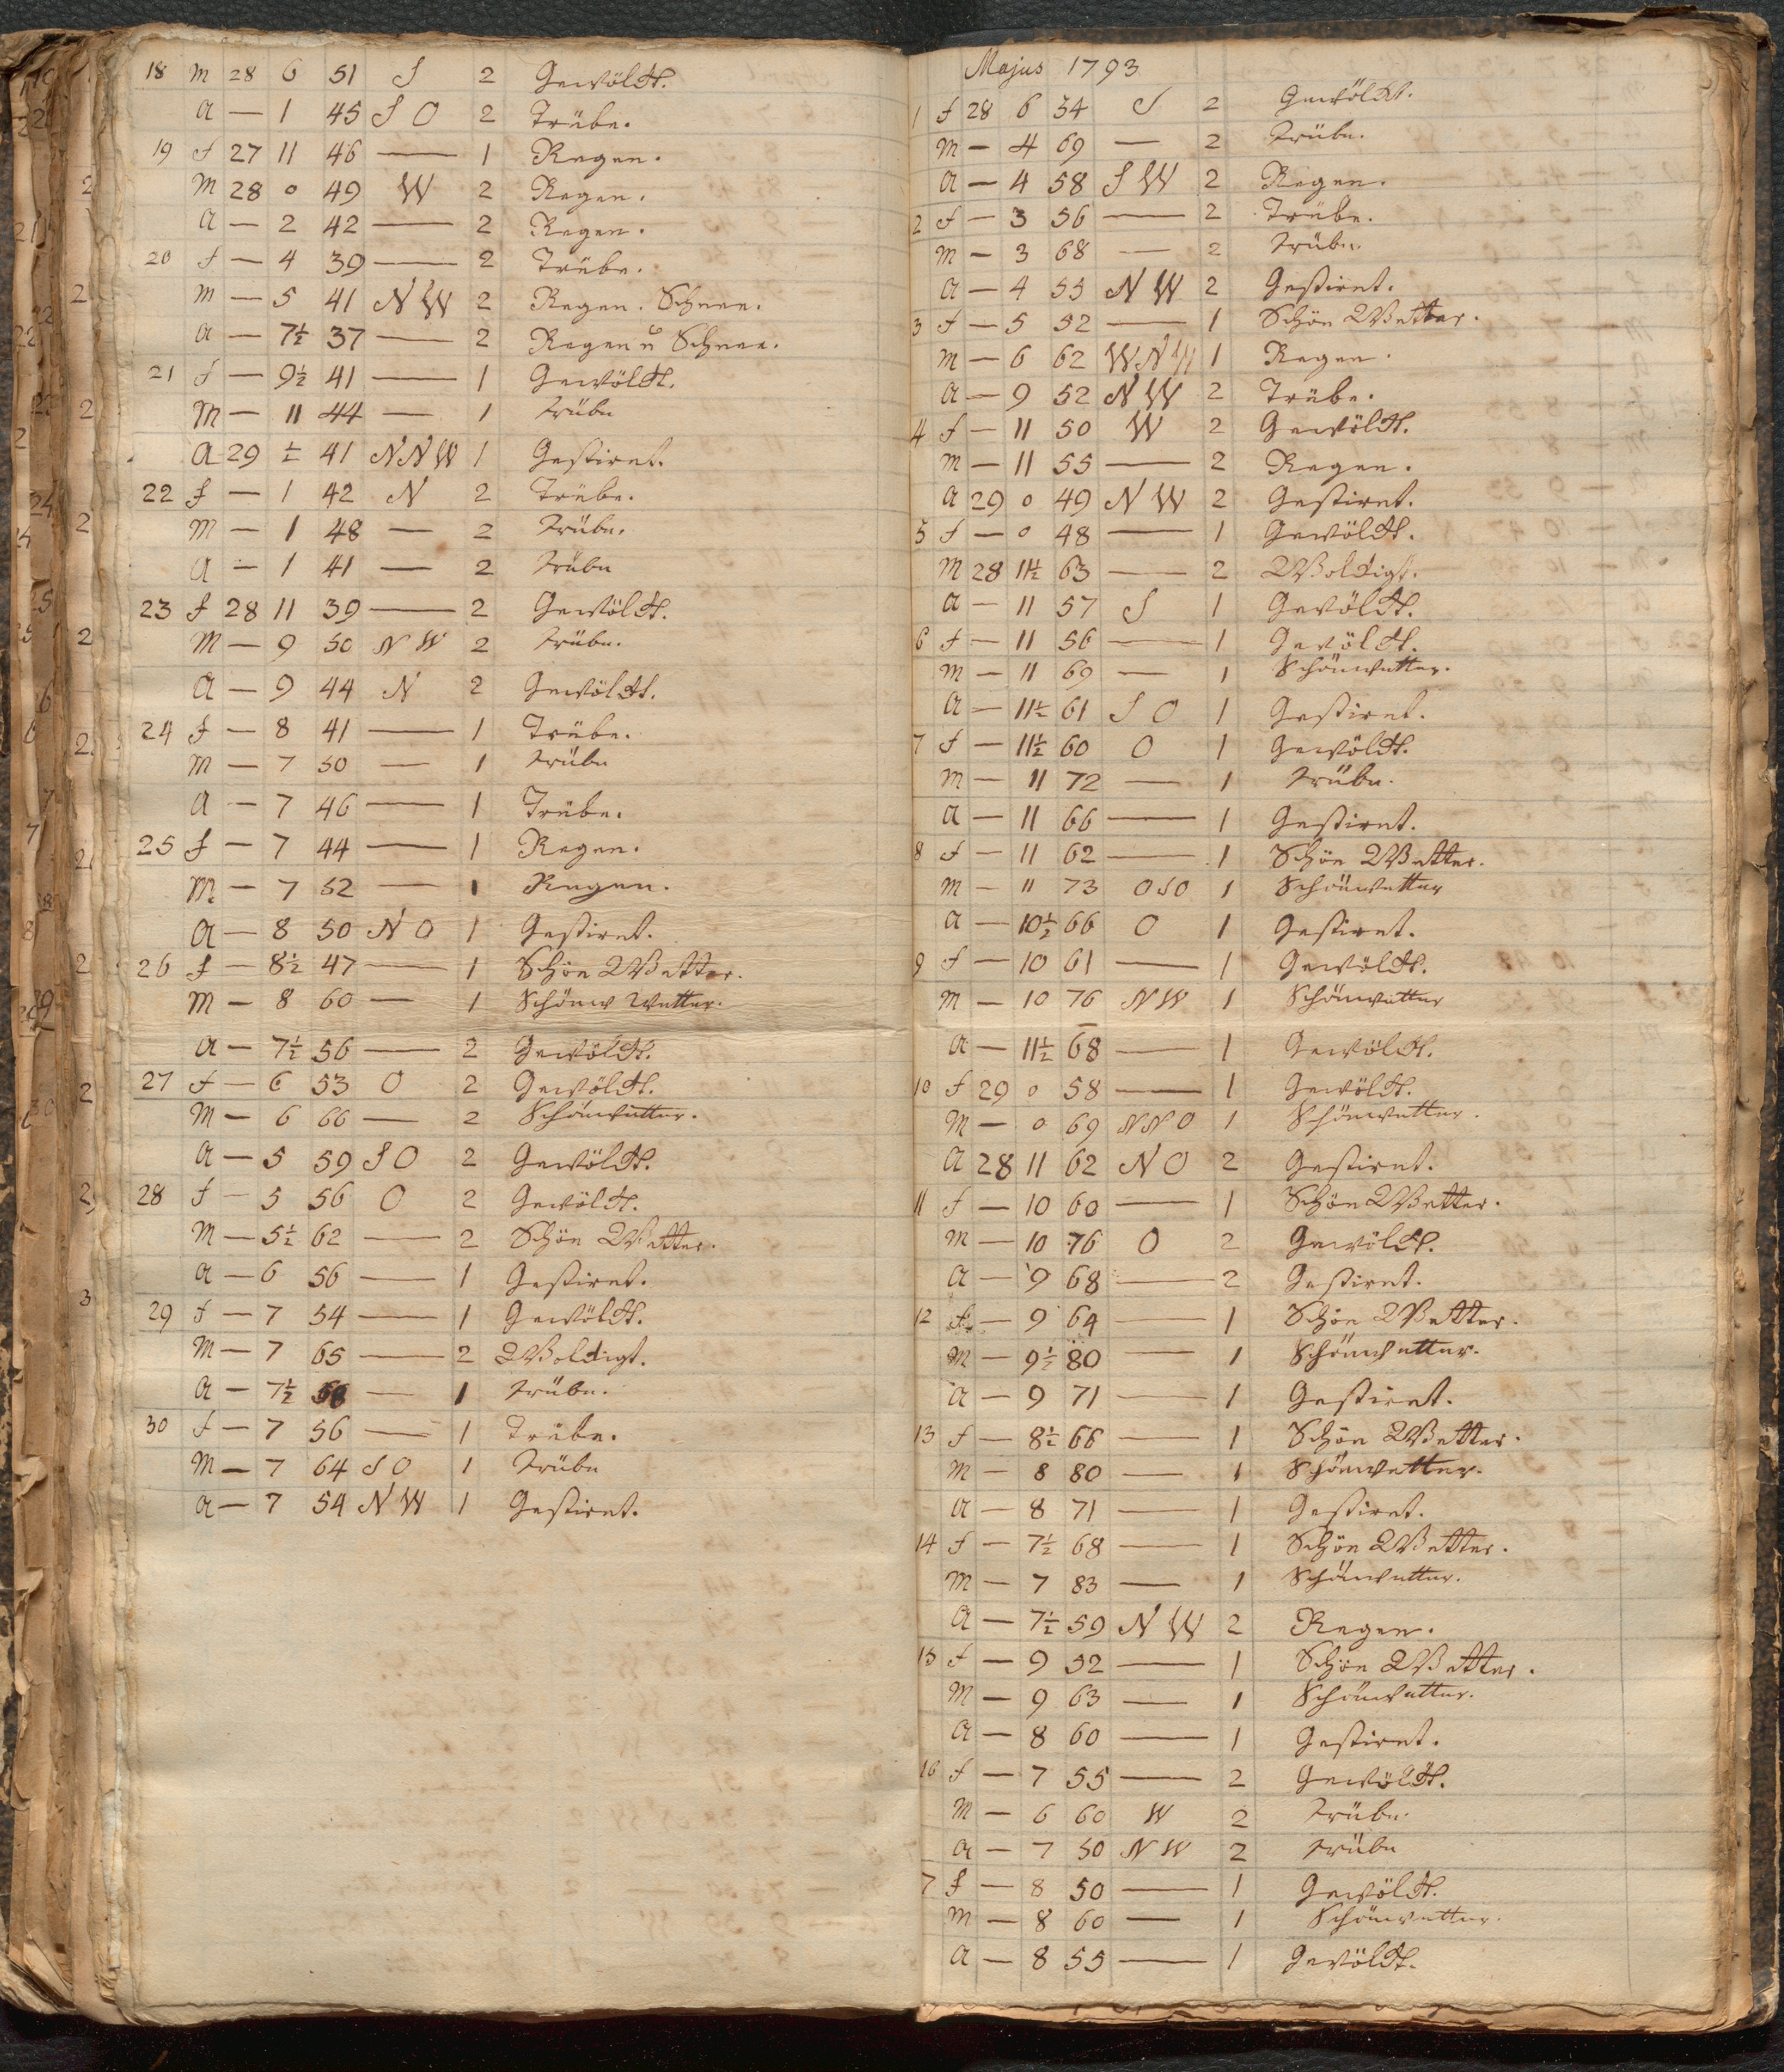 18 m 28 6 51 S 2 Gewölckt.
a — 1 45 S O 2 Trübe.
19 f 27 11 46 — 1 Regen.
M 28 0 49 W 2 Regen.
a — 2 42 — 2 Regen.
20 f — 4 39 — 2 Trübe.
m — 5 41 N W 2 Regen. Schnee.
a — 7½ 37 — 2 Regen u Schnee.
21 f — 9½ 41 — 1 Gewölckt.
M — 11 44 — 1 trübe
a 29 ½ 41 N N W 1 Gestirnt.
22 f — 1 42 N 2 Trübe.
m — 1 48 — 2 trübe.
a — 1 41 — 2 trübe
23 f 28 11 39 — 2 Gewölckt.
M — 9 50 N W 2 trübe.
a — 9 44 N 2 Gewölckt.
24 f — 8 41 — 1 Trübe.
m — 7 50 — 1 trübe
a — 7 46 — 1 Trübe.
25 f — 7 44 — 1 Regen.
M — 7 52 — 1 Regen.
a — 8 50 N O 1 Gestirnt.
26 f — 8½ 47 — 1 Schön Wetter.
M — 8 60 — 1 Schönes Wetter.
a — 7½ 56 — 2 Gewölckt.
27 f — 6 53 O 2 Gewölckt.
M — 6 66 — 2 Schönwetter.
a — 5 59 S O 2 Gewölckt.
28 f — 5 56 O 2 Gewölckt.
M — 5½ 62 — 2 Schön Wetter.
a — 6 56 — 1 Gestirnt.
29 f — 7 54 — 1 Gewölckt.
M — 7 65 — 2 Wolckigt.
a — 7½ — 1 trübe.
30 f — 7 56 — 1 Trübe.
M — 7 64 S O 1 trübe
a — 7 54 N W 1 Gestirnt.
Majus 1793
1 f 28 6 54 S 2 Gewölckt.
m — 4 69 — 2 trübe.
a — 4 58 S W 2 Regen.
2 f — 3 56 — 2 Trübe.
m — 3 68 — 2 trübe.
a — 4 55 N W 2 Gestirnt.
3 f — 5 52 — 1 Schön Wetter.
m — 6 62 W N W 1 Regen.
a — 9 52 N W 2 Trübe.
4 f — 11 50 W 2 Gewölckt.
m — 11 55 — 2 Regen.
a 29 0 49 N W 2 Gestirnt.
5 f — 0 48 — 1 Gewölckt.
M 28 11½ 63 — 2 Wolckigt.
a — 11 57 S 1 Gewölckt.
6 f — 11 56 — 1 Gewölckt.
m — 11 69 — 1 Schönwetter.
a — 11½ 61 S O 1 Gestirnt.
7 f — 11½ 60 O 1 Gewölckt.
m — 11 72 — 1 trübe.
a — 11 66 — 1 Gestirnt.
8 f — 11 62 — 1 Schön Wetter.
m — 11 73 O S O 1 Schönwetter
a — 10½ 66 O 1 Gestirnt.
9 f — 10 61 — 1 Gewölckt.
m — 10 76 N W 1 Schönwetter
a — 11½ 68 — 1 Gewölckt.
10 f 29 0 58 — 1 Gewölckt.
M — 0 69 N N O 1 Schönwetter.
a 28 11 62 N O 2 Gestirnt.
11 f — 10 60 — 1 Schön Wetter.
m — 10 76 O 2 Gewölckt.
a — 9 68 — 2 Gestirnt.
12 f — 9 64 — 1 Schön Wetter.
M — 9½ 80 — 1 Schönwetter.
a — 9 71 — 1 Gestirnt.
13 f — 8½ 66 — 1 Schön Wetter.
M — 8 80 — 1 Schönwetter.
a — 8 71 — 1 Gestirnt.
14 f — 7½ 68 — 1 Schön Wetter.
m — 7 83 — 1 Schönwetter.
a — 7½ 59 N W 2 Regen.
15 f — 9 52 — 1 Schön Wetter.
M — 9 63 — 1 Schönwetter.
a — 8 60 — 1 Gestirnt.
16 f — 7 55 — 2 Gewölckt.
M — 6 60 W 2 trübe.
a — 7 50 N W 2 trübe
7 f — 8 50 — 1 Gewölckt.
m — 8 60 — 1 Schönwetter.
a — 8 55 — 1 Gewölckt.